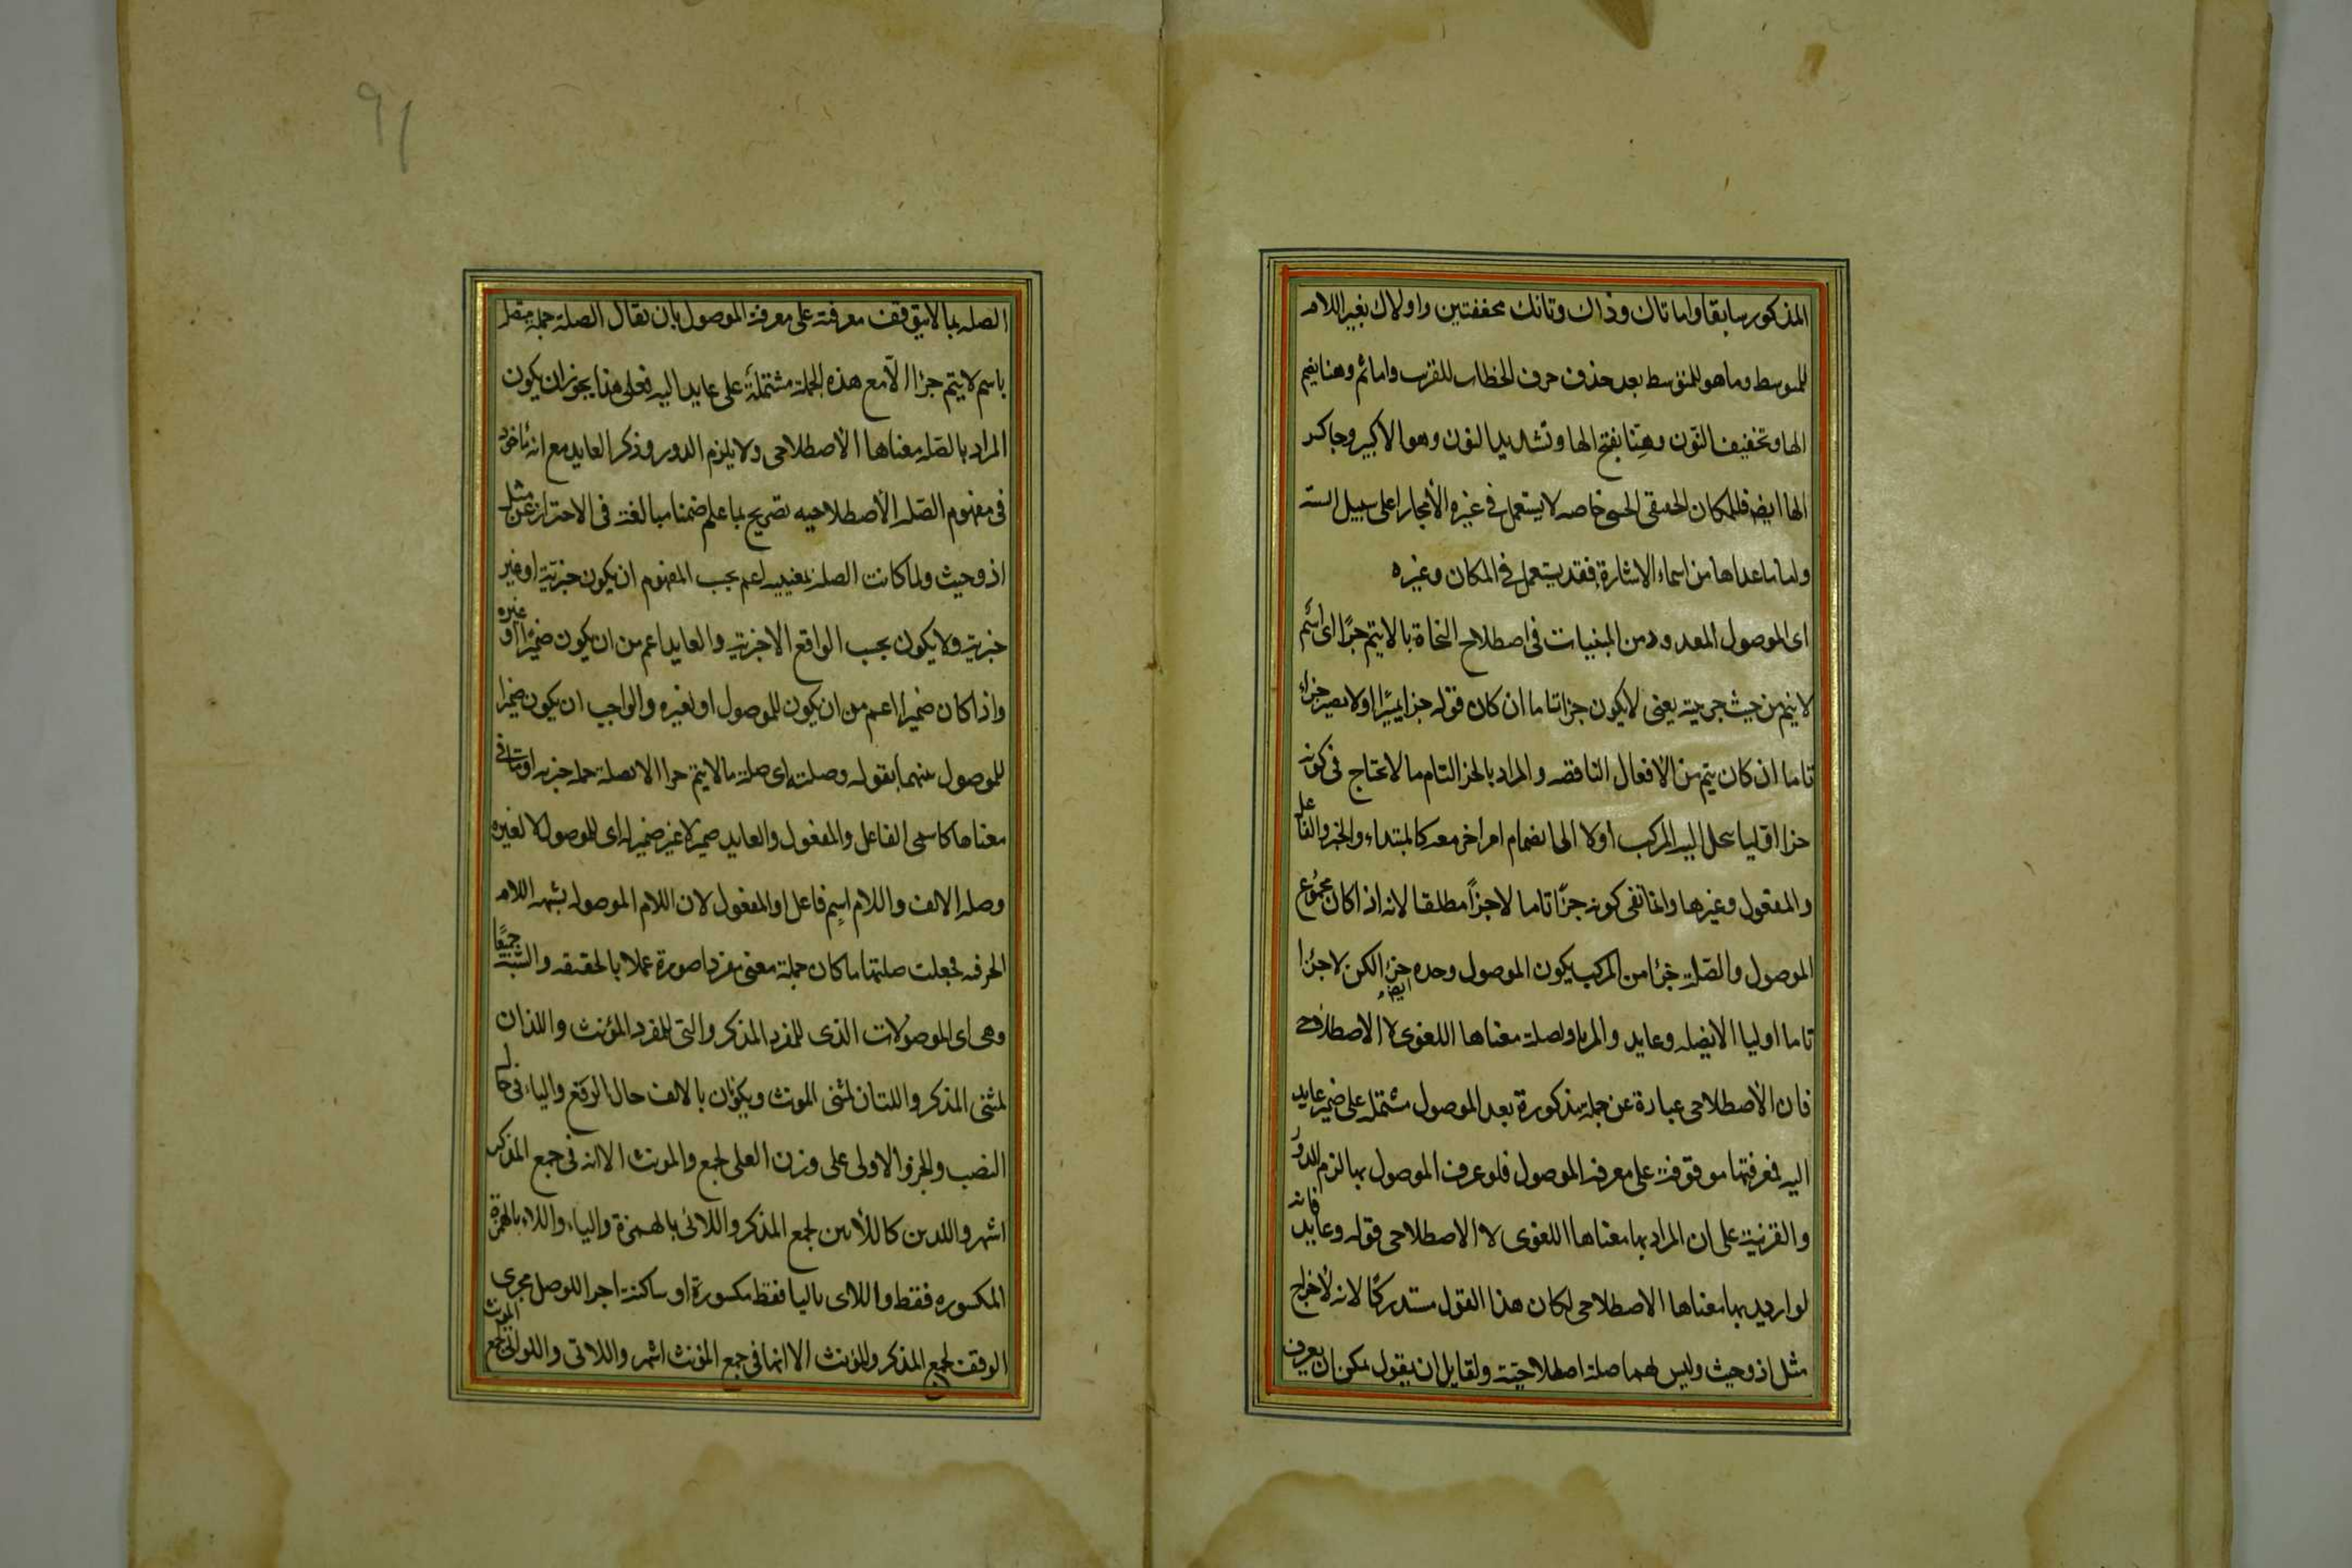 المذكور سابقا واما تاك وذان وتانك مخففتين واولاك بغير اللام
للمتوسط وما هو للمتوسط بعد حذف حرف الخطاب للقرب واما ثم وهنا بضم
الها وتخفيف النون وهنا بفتح الها وتشديد النون وهو الاكثر وجا كسر
الها ايضا فللمكان الحقيقى الحسى خاصه لا يستعمل فى غيره الا مجازا على سبيل
واما ما عداها من اسماء الاشارة فقد يستعمل فى المكان وغيره
اى الموصول المعدود من المبنيات فى اصطلاح النحاة ما لا يتم جزًا اى اسم
لا يتم من حيث جزئيته يعنى لا يكون جزا تاما ان كان قوله جزا تميزًا او لا يصير جزاء
تاما ان كان يتم من الافعال الناقصه والمراد بالجز التام ما لا يحتاج فى كونه
جزا اوليا ينحل اليه المركب اولا الى انضمام امر اخر معه كالمبتداء والخبر والفاعل
والمفعول وغيرها وانما نفى كونه جزًا تاما لا جزاً مطلقا لانه اذا كان مجموع
الموصول والصلة جزءا من المركب يكون الموصول وحده ايضا جزءا لكن لا جزءا
تاما اوليا الا بصله وعايد والمراد بصلة معناها اللغوى لا الاصطلاحى
فان الاصطلاحى عبارة عن جملة مذكورة بعد الموصول مشتملة على ضمير عايد
اليه فمعرفتها موقوفة على معرفة الموصول فلو عرف الموصول بها لزم الدور
والقرنية على ان المراد بها معناها اللغوى لا الاصطلاحى قوله وعايد فانه
لو اريد بها معناها الاصطلاحى لكان هذا القول مستدركًا لانه لاخراج
مثل اذ وحيث وليس لهما صلة اصطلاحيتة ولقايل ان يقول يمكن ان يعرف
٩١
الصله بما لا يتوقف معرفته على معرفة الموصول بان يقال الصلة جملة متصلة
باسم لا يتم جزءا الّا مع هذه الجملة مشتملة على عايد اليه فعلى هذا يجوز ان يكون
المراد بالصله معناها الاصطلاحى ولا يلزم الدور وذكر العايد مع انه ماخوذ
فى مفهوم الصله الاصطلاحيه تصريح بما علم ضمنا مبالغة فى الاحتراز عن مثل
اذ وحيث ولما كانت الصلة بمعنييه اعم بحسب المفهوم ان يكون خبرية او غير
خبرية ولا يكون بحسب الواقع الا خبرية والعايد اعم من ان يكون ضميرًا او غيره
واذا كان ضميرا اعم من ان يكون للموصول او لغيره والواجب ان يكون ضميرا
للموصول بقوله وصلته اى صلة ما لا يتم جزا الا بصلة جملة خبريه او ما فى
معناها كاسمى الفاعل والمفعول والعايد ضمير لا غير ضمير له اى للموصول لا لغيره
وصله الالف واللام اسم فاعل او المفعول لان اللام الموصوله يشبه اللام
الحرفيه فجعلت صلتها ما كان جملة معنى مفردا صورة عملا بالحقيقه والشبه جميعًا
وهى اى الموصولات الذى للمفرد المذكر والتى للمفرد المؤنث واللذان
لمثنى المذكر واللتان لمثنى المونث ويكونان بالالف حال الرفع والياء فى حال
النصب والجر والاولى على وزن العلى لجمع والمونث الا انه فى جمع المذكر
اشهر واللذين كاللائين لجمع المذكر واللائى بالهمزة والياء واللاء بالهمزة
المكسوره فقط واللاى باليا فقط مكسورة او ساكنة اجرا للوصل مجرى
الوقف لجمع المذكر والمؤنث الا انها فى جمع المؤنث اشهر واللاتى واللواتى لجمع المونث